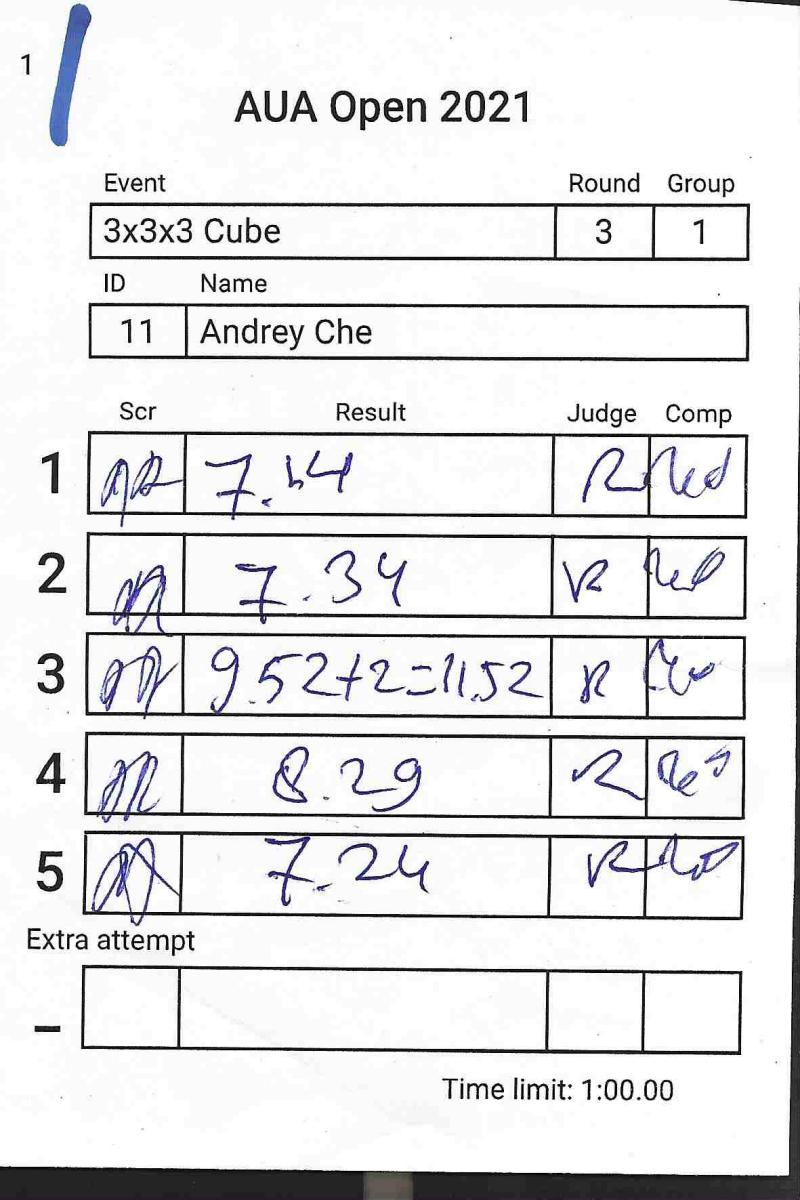 1
AUA Open 2021
Event Round Group
3x3x3 Cube 3 1
ID Name
11 Andrey Che
Scr Result Judge Comp
1
2 7.34
3 9.52+2=11.52
4 8.29
5 7.24
Extra attempt
–
Time limit: 1:00.00